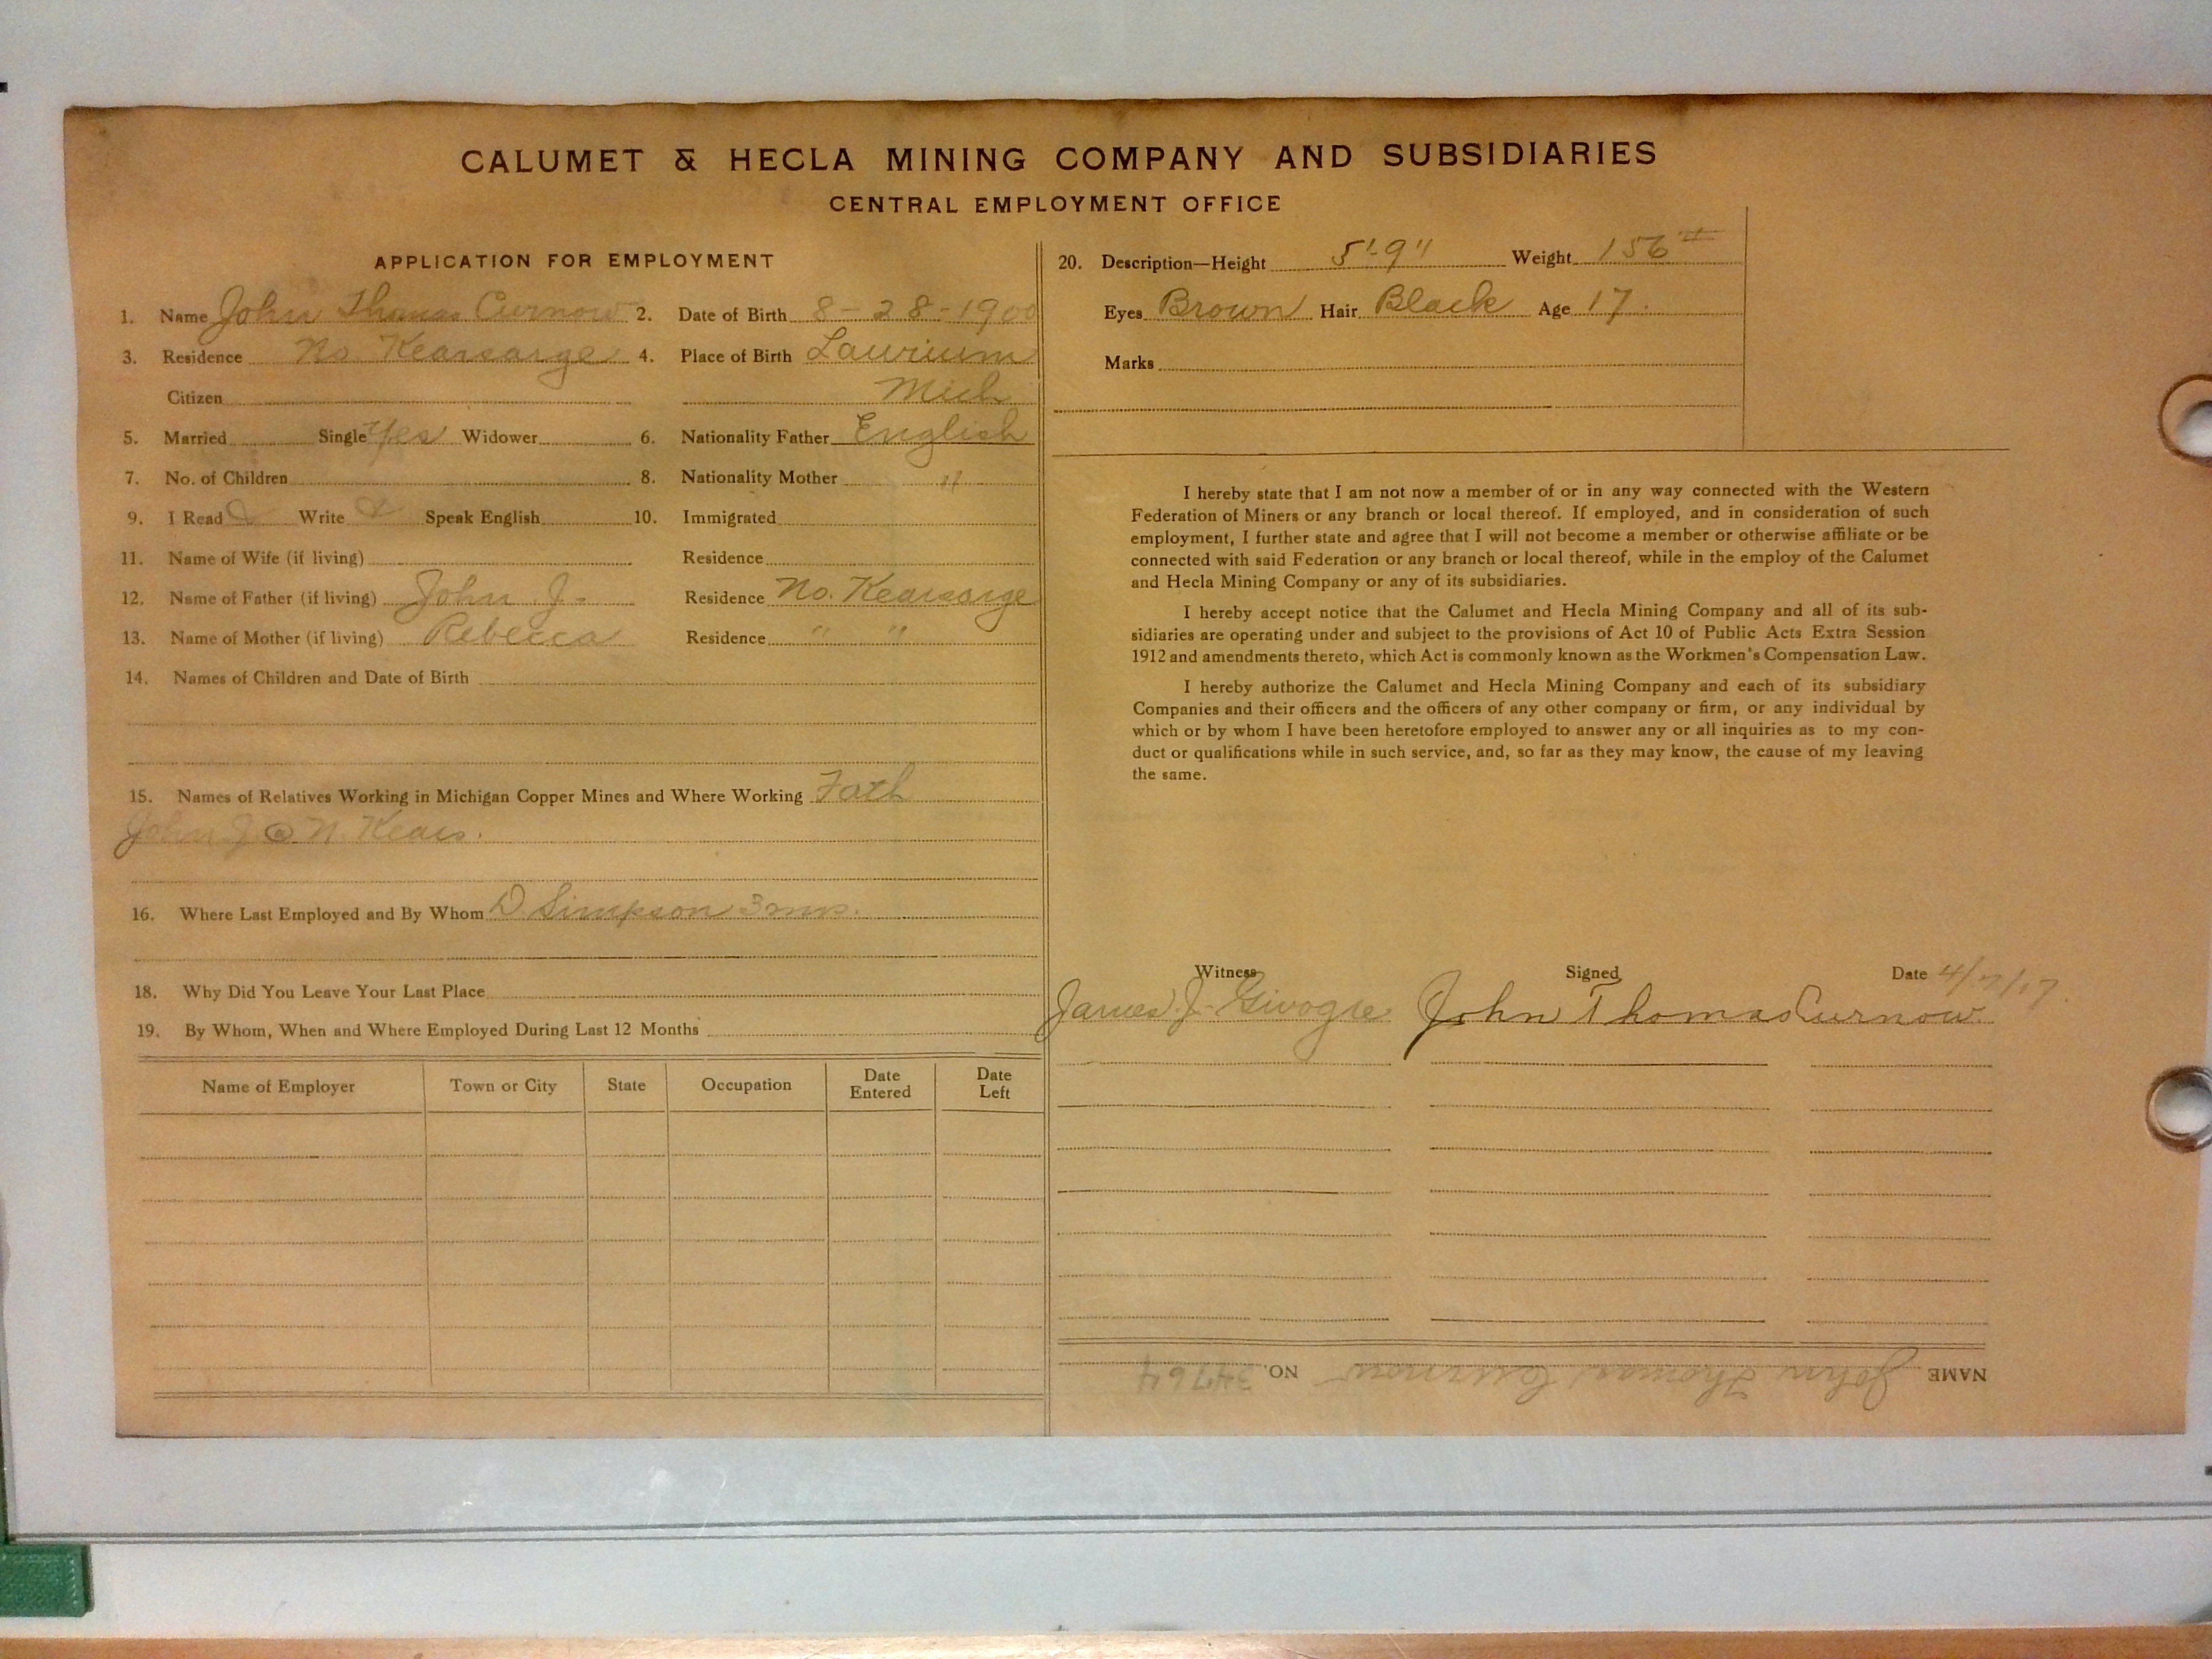 CALUMET & HECLA MINING COMPANY AND SUBSIDIARIES
CENTRAL EMPLOYMENT OFFICE
APPLICATION FOR EMPLOYMENT
1. Name John Thomas Curnow 2. Date of Birth 8-28-1900
3. Residence No. Kearsarge 4. Place of Birth Laurium
Citizen Mich
5. Married Single Yes Widower 6. Nationality Father English
7. No. of Children 8. Nationality Mother "
9. I Read Write Speak English 10. Immigrated
11. Name of Wife (if living) Residence
12. Name of Father (if living) John J. Residence No. Kearsarge
13. Name of Mother (if living) Rebecca Residence " "
14. Names of Children and Date of Birth
15. Names of Relatives Working in Michigan Copper Mines and Where Working Fath
John J @ N. Kears.
16. Where Last Employed and By Whom D Simpson 3 mos.
18. Why Did You Leave Your Last Place
19. By Whom, When and Where Employed During Last 12 Months
Name of Employer Town or City State Occupation Date Entered Date Left
20. Description—Height 5'-9" Weight 156#
Eyes Brown Hair Black Age 17.
Marks
I hereby state that I am not now a member of or in any way connected with the Western
Federation of Miners or any branch or local thereof. If employed, and in consideration of such
employment, I further state and agree that I will not become a member or otherwise affiliate or be
connected with said Federation or any branch or local thereof, while in the employ of the Calumet
and Hecla Mining Company or any of its subsidiaries.
I hereby accept notice that the Calumet and Hecla Mining Company and all of its sub-
sidiaries are operating under and subject to the provisions of Act 10 of Public Acts Extra Session
1912 and amendments thereto, which Act is commonly known as the Workmen's Compensation Law.
I hereby authorize the Calumet and Hecla Mining Company and each of its subsidiary
Companies and their officers and the officers of any other company or firm, or any individual by
which or by whom I have been heretofore employed to answer any or all inquiries as to my con-
duct or qualifications while in such service, and, so far as they may know, the cause of my leaving
the same.
Witness Signed Date 4/7/17.
James J. John Thomas Curnow.
NAME John Thomas Curnow NO. 34764